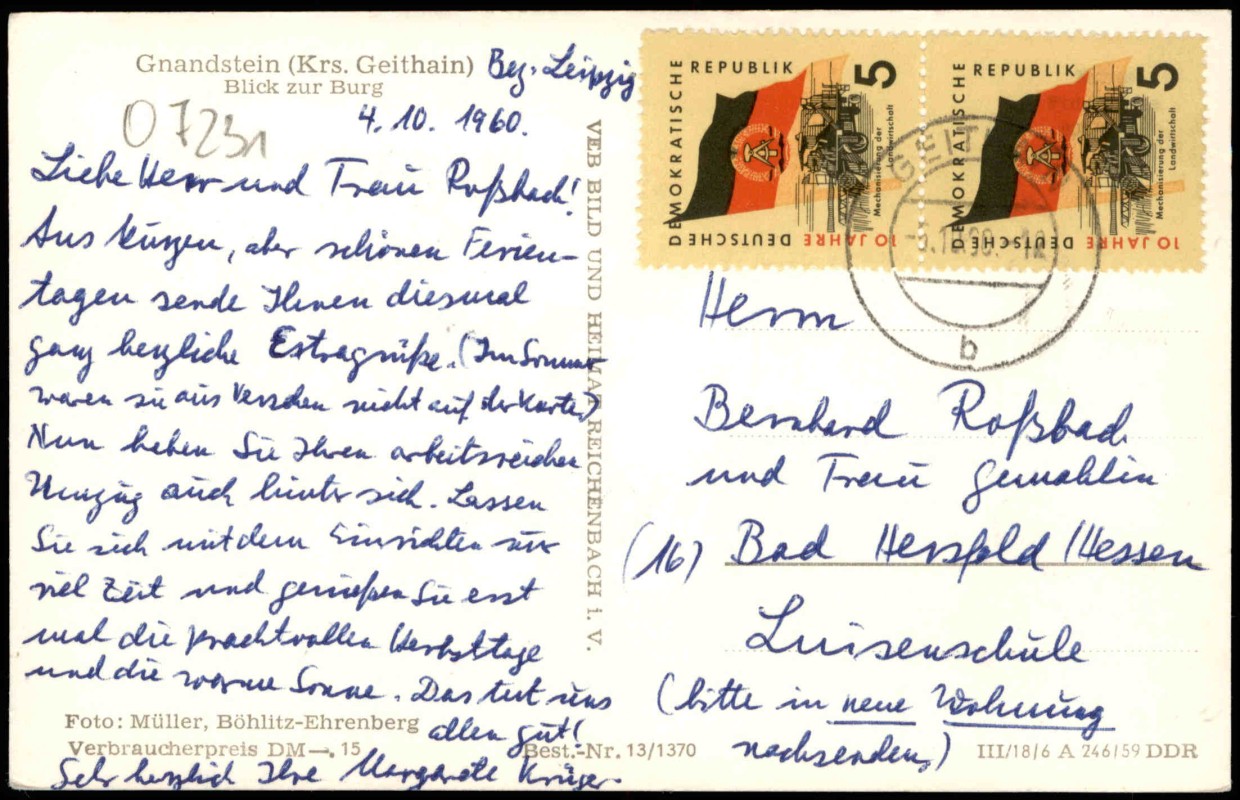 Gnandstein (Krs. Geithain) Bez. Leipzig
Blick zur Burg
07231
4. 10. 1960.
Liebe Herr und Frau Roßbach!
Aus kurzen, aber schönen Ferien-
tagen sende Ihnen diesmal
ganz herzliche Extragrüße. (Im Sommer
waren sie aus Versehen nicht auf der Karte)
Nun haben Sie Ihren arbeitsreichen
Umzug auch hinter sich. Lassen
Sie sich mit dem Einrichten nur
viel Zeit und genießen Sie erst
mal die prachtvollen Herbsttage
und die warme Sonne. Das tut uns
allen gut!
Sehr herzlich Ihre Margarete Krüger.
Foto: Müller, Böhlitz-Ehrenberg
Verbraucherpreis DM —. 15
Best.-Nr. 13/1370
III/18/6 A 246/59 DDR
VEB BILD UND HEIMAT REICHENBACH i. V.
10 JAHRE DEUTSCHE DEMOKRATISCHE REPUBLIK
5
Mechanisierung der
Landwirtschaft
10 JAHRE DEUTSCHE DEMOKRATISCHE REPUBLIK
5
Mechanisierung der
Landwirtschaft
b
Herrn
Bernhard Roßbach
und Frau Gemahlin
(16) Bad Hersfeld/Hessen
Luisenschule
(bitte in neue Wohnung
nachsenden)